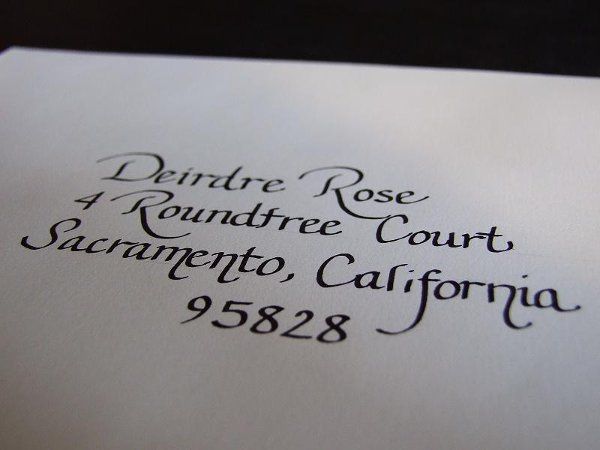 Deirdre Rose
4 Roundtree Court
Sacramento, California
95828